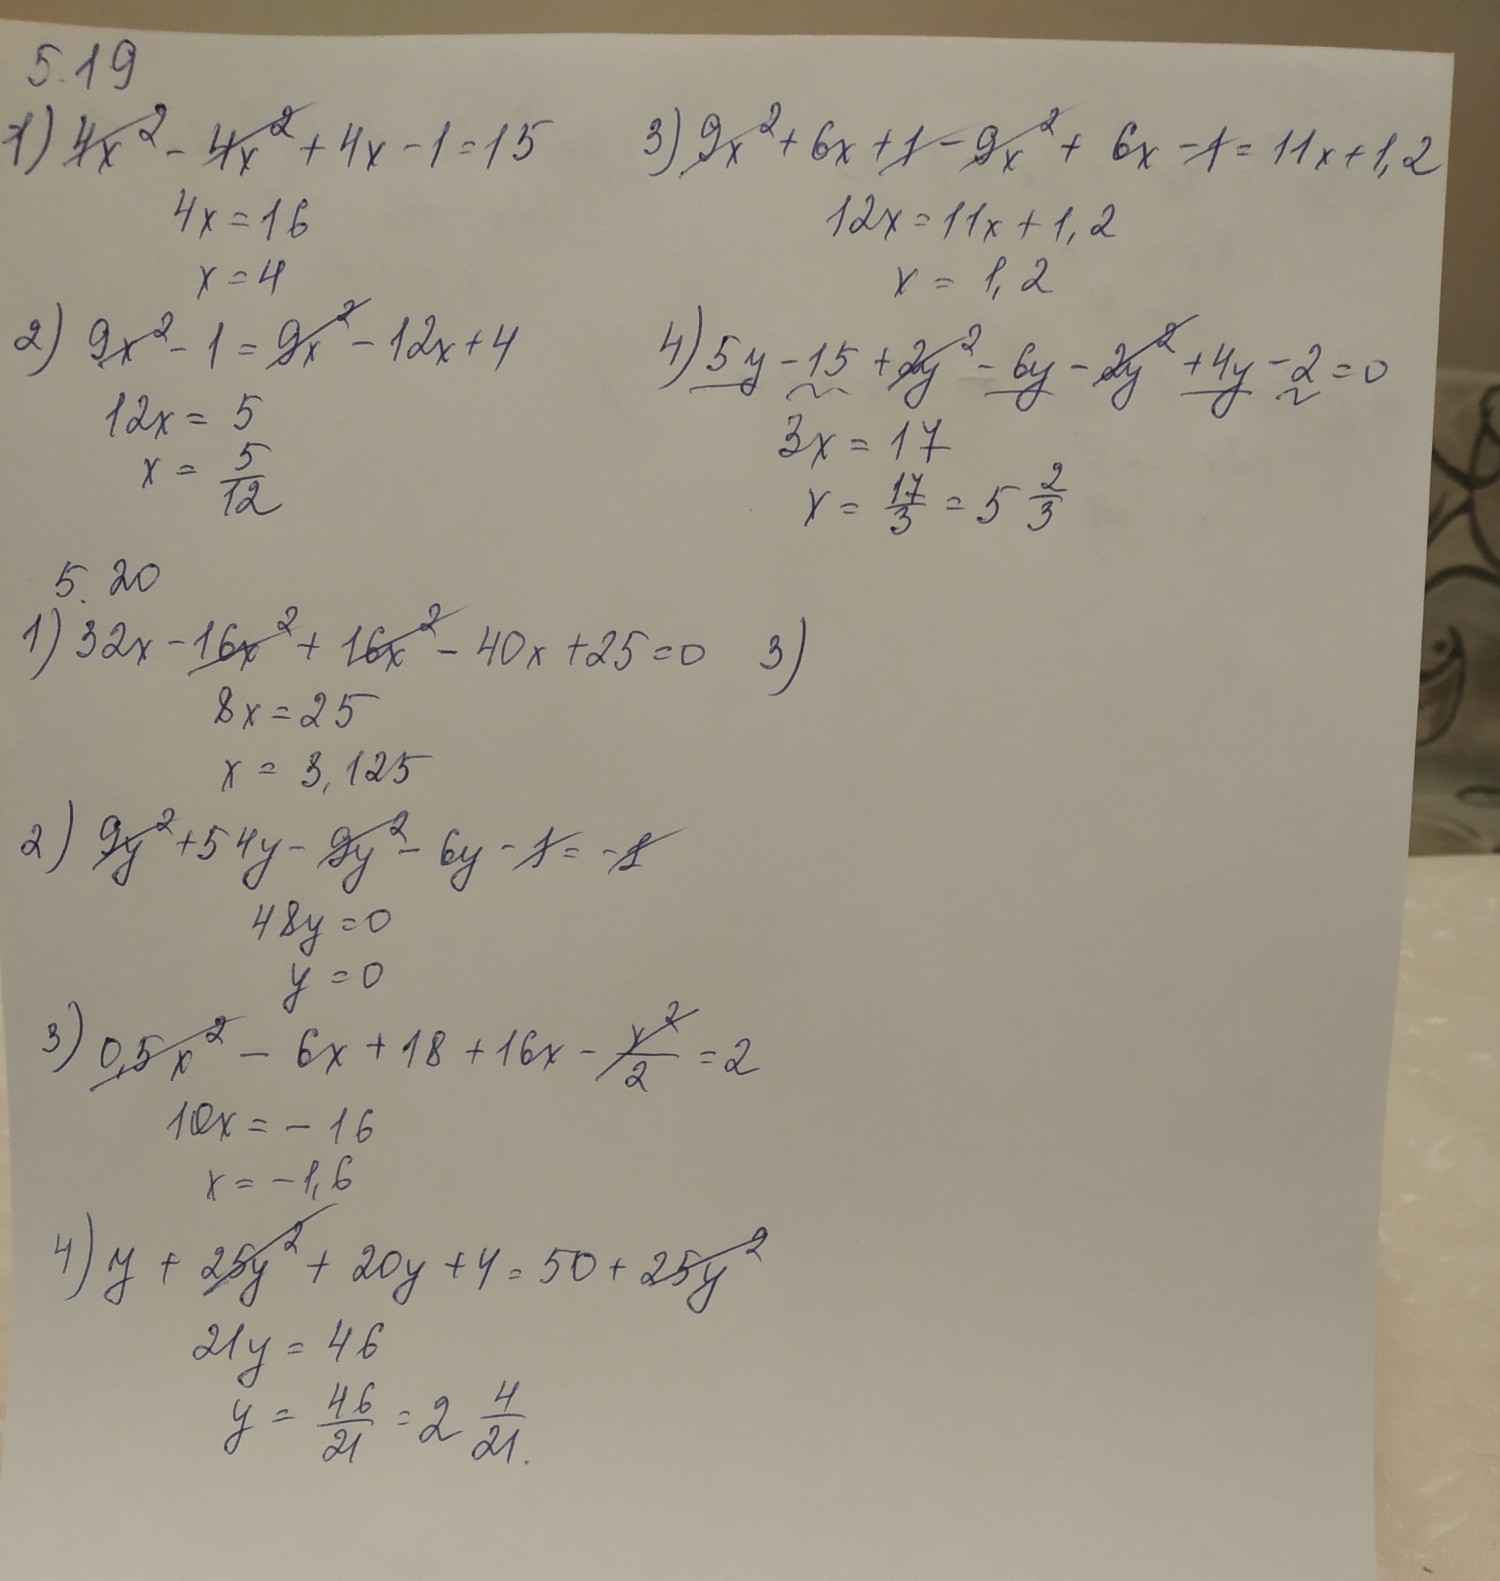 5.19
1) 4x² - 4x² + 4x - 1 = 15
4x = 16
x = 4
2) 9x² - 1 = 9x² - 12x + 4
12x = 5
x = 5/12
3) 9x² + 6x + 1 - 9x² + 6x - 1 = 11x + 1,2
12x = 11x + 1,2
x = 1,2
4) 5y - 15 + 2y² - 6y - 2y² + 4y - 2 = 0
3x = 17
x = 17/3 = 5 2/3
5.20
1) 32x - 16x² + 16x² - 40x + 25 = 0
8x = 25
x = 3,125
3)
2) 9y² + 54y - 9y² - 6y - 1 = -1
48y = 0
y = 0
3) 0,5x² - 6x + 18 + 16x - x²/2 = 2
10x = -16
x = -1,6
4) y + 25y² + 20y + 4 = 50 + 25y²
21y = 46
y = 46/21 = 2 4/21.